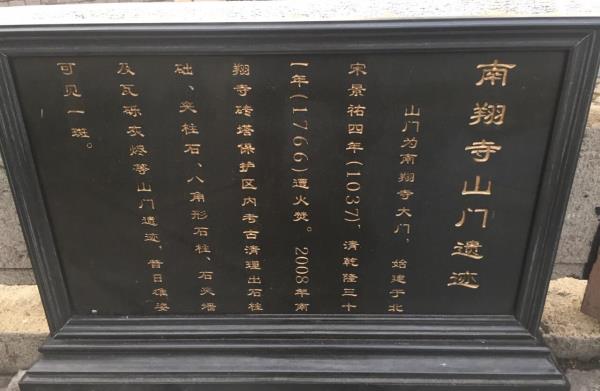 南翔寺山门遗迹
山门为南翔寺大门，始建于北
宋景祐四年(1037)，清乾隆三十
一年(1766)遭火焚。2008年南
翔寺砖塔保护区内考古清理出石柱
础、夹柱石、八角形石柱、石夹墙
及瓦砾灰烬等山门遗迹，昔日雄姿
可见一斑。